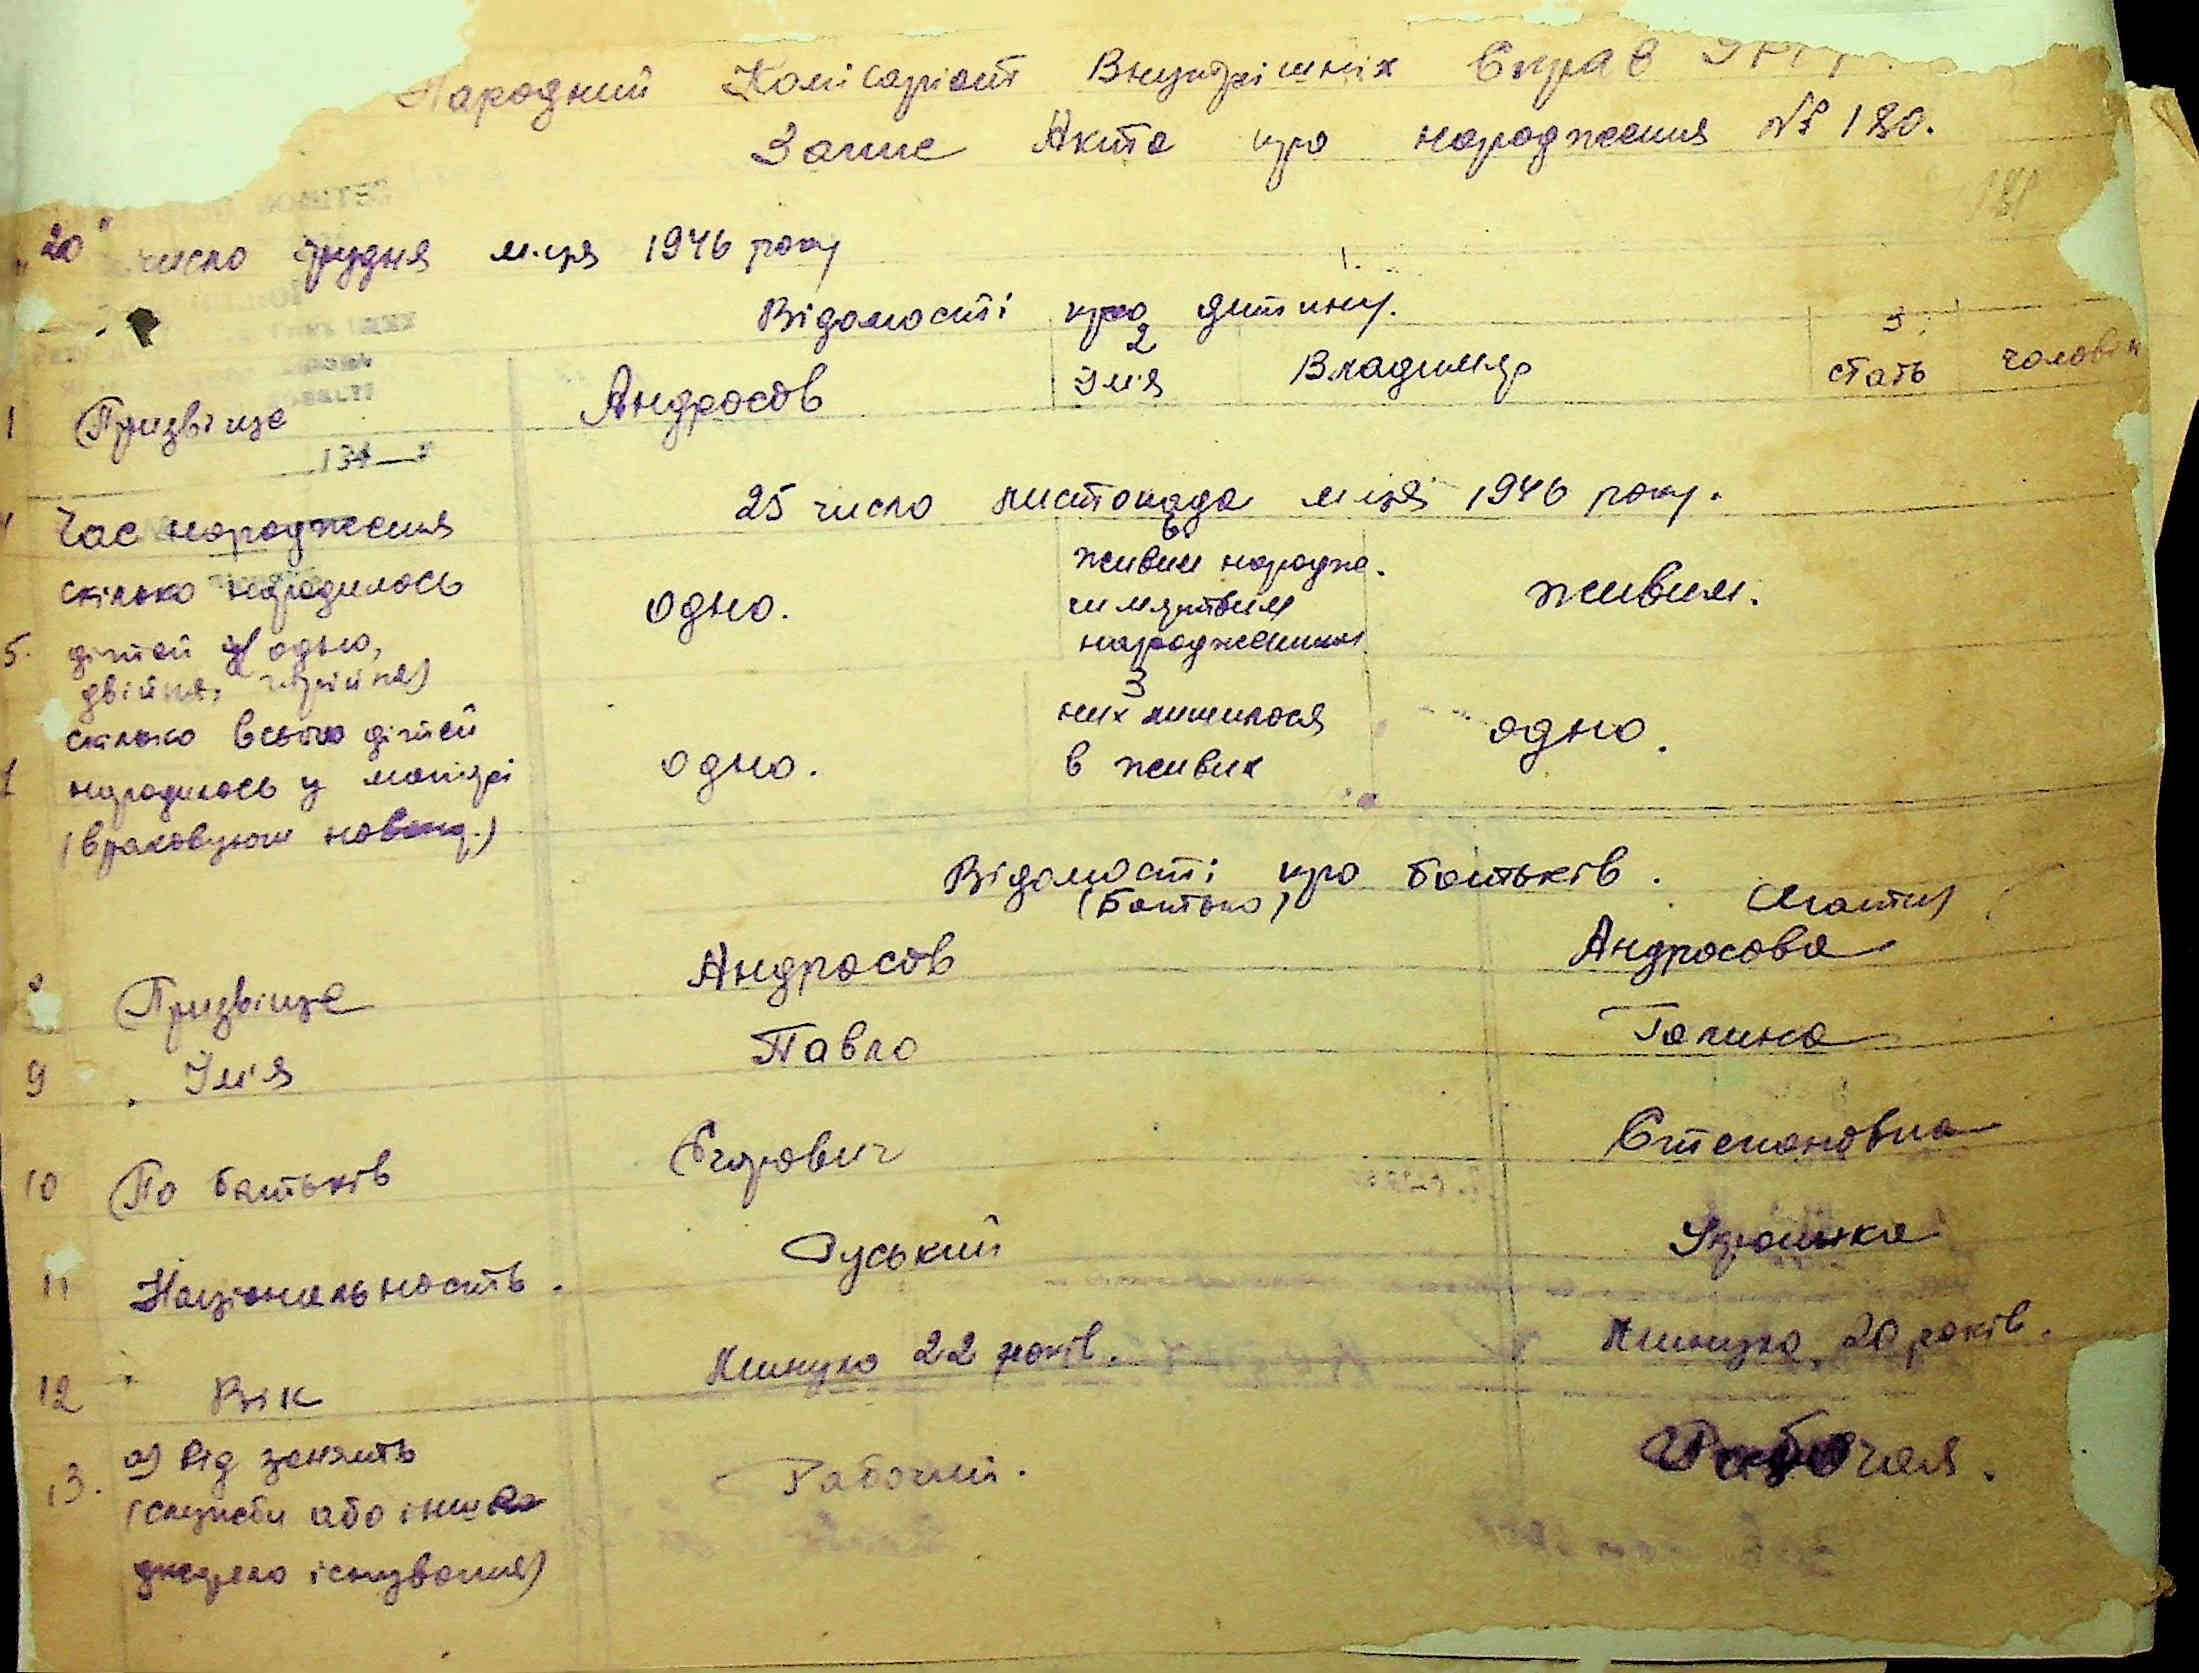 Народний Комісаріат Внутрішніх Справ
Запис Акта про народження № 180.
181
"20" число грудня м-ця 1946 року
Відомості про дитину.
1 Прізвіще Андросов 2 Імя Владимир 3 стать чоловік
134
Час народження 25 число листопада м-ця 1946 року.
5. скілько народилось дітей одно, двійня, трійня) одно. 6 живим народже. чи мертвим народженним живим.
скілько всього дітей народилось у матері (враховуючи новонар.) одно. З них лишилося в живих одно.
Відомості про батьків.
(Батько) (Мати)
8 Прізвіще Андросов Андросова
9 Ім'я Павло Галина
10 По батьків Єгорович Степановна
11 Національность. Руський Українка
12 Вік Минуло 22 років. Минуло 20 років.
13. а) Від занять Рабочий. Рабочая.
(служби або інше
джерело існування)